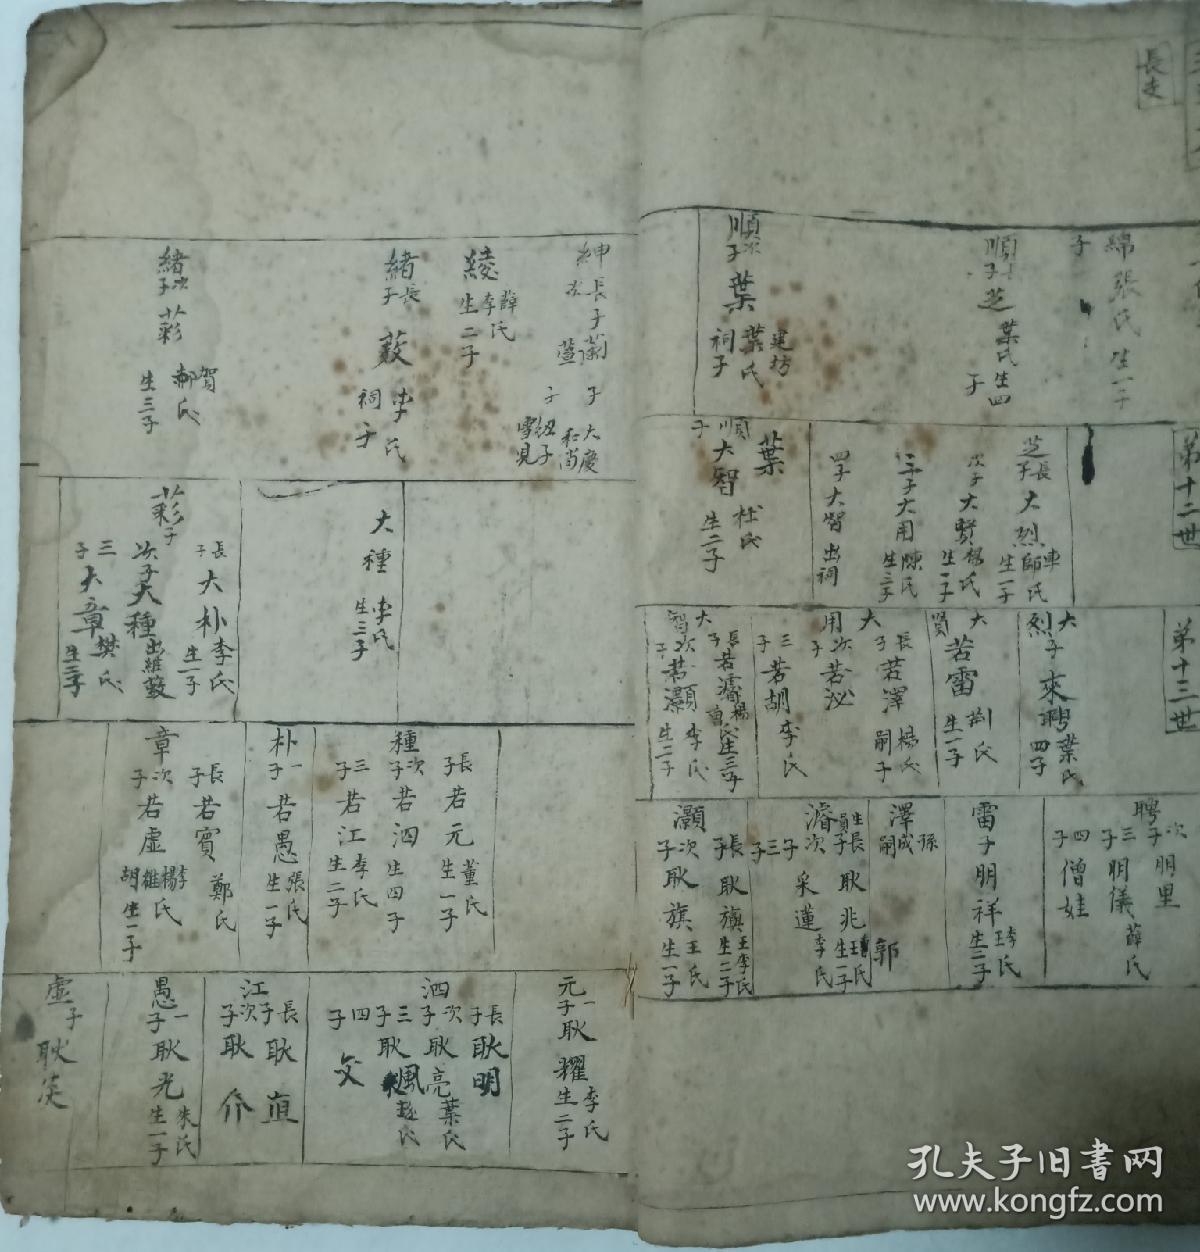 長支
綿張氏生一子
順子芝葉氏生四子
順次子葉葉氏建坊祠子
紳長子蘭子大慶和尚
綾薛李氏生二子
緒長子蔌李氏祠子
緒次子彩賀郝氏生三子
第十二世
芝長子大烈車師氏生一子
次子大賢楊氏生一子
三子大用陳氏生三子
四子大智出祠
葉順子大智杜氏生二子
大種李氏生三子
彩子
長子大朴李氏生一子
次子大種出維蔌
三子大章樊氏生二子
第十三世
大烈子來聘葉氏四子
大賢若雷荊氏生一子
大用長子若澤楊氏嗣子
次子若泌
三子若胡李氏
大智長子若濬楊曹氏生三子
次子若灝李氏生二子
種長子若元董氏生一子
次子若泗生四子
三子若江李氏生二子
朴一子若愚張氏生一子
章長子若賓鄭氏
次子若虛李楊維氏胡生一子
聘次子明里
三子明儀薛氏
四子僧娃
雷子明祥李王氏生二子
澤孫成嗣郭
濬生員長子耿兆
次子三子采蓮李氏
灝長子耿旗王李氏生二子
次子耿旗王氏生一子
元一子耿耀李氏生二子
泗長子耿明
次子耿亮葉氏
三子耿颯趙氏
四子文
江長子耿直
次子耿介
愚一子耿光朱氏生一子
虛子耿英
孔夫子旧书网
www.kongfz.com